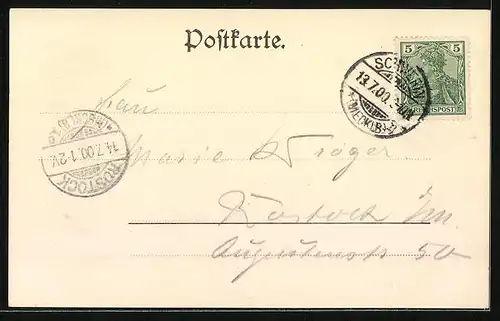 Postkarte.
5 5
13.7.00.
*(MECKLB.)*
Frau
14.7.00.1-2V.
ROSTOCK
Marie Kröger
Rostock i/m.
Augustenstr 50